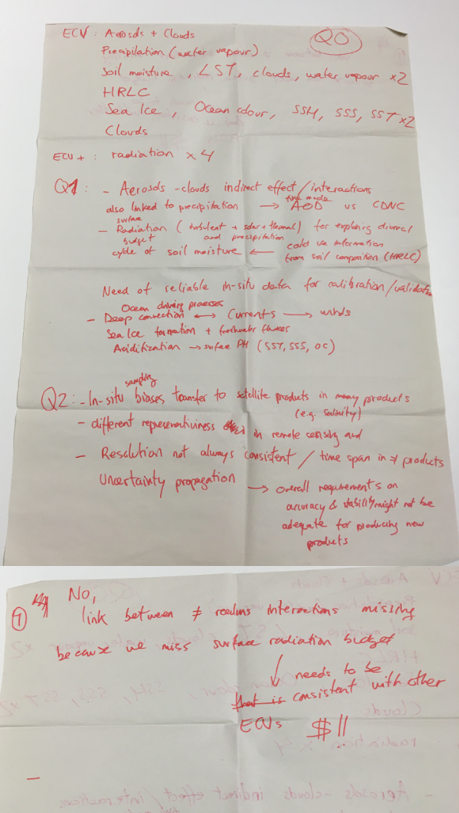 Q0
ECV: Aerosols + Clouds
Precipitation (water vapour)
Soil moisture, LST, clouds, water vapour x2
HRLC
Sea Ice, Ocean colour, SSH, SSS, SST x2
Clouds
ECV+: radiation x4
Q1: - Aerosols-clouds indirect effect / interactions
also linked to precipitation → fine mode AOD vs CDNC
- surface Radiation budget (turbulent + solar + thermal) and precipitation for exploring diurnal
cycle of soil moisture ← could use information
from soil composition (HRLC)
Need of reliable in-situ data for calibration/validation
Ocean driving processes
- Deep convection ↔ Currents → winds
Sea Ice formation + freshwater fluxes
Acidification → surface PH (SST, SSS, OC)
Q2: - In-situ sampling biases transfer to satellite products in many products
(e.g. salinity)
- different representativiness in remote sensing and
- Resolution not always consistent / time span in ≠ products
Uncertainty propagation → overall requirements on
accuracy & stability might not be
adequate for producing new
products
7 No,
link between ≠ realms interactions missing
because we miss surface radiation budget
↓ needs to be
consistent with other
ECVs $!!
-